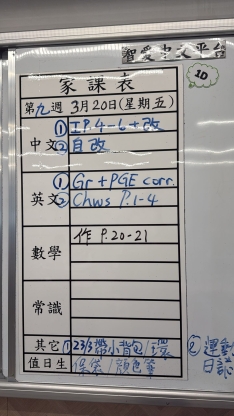 智愛中文平台
10
家課表
第九週 3月20日(星期五)
中文 ① I P.4-6+改
② 自改
英文 ① Gr + PGE corr.
② Chws P.1-4
數學 作 P.20-21
常識
其它 ① 23/3帶小背包/環
保袋/顏色筆
② 運動
日誌
值日生